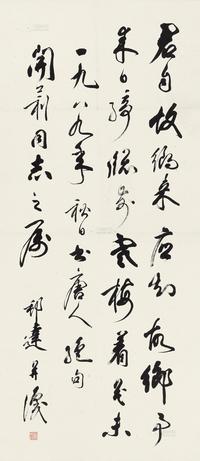 君自故乡来应知故乡事
来日绮窗前寒梅着花未
一九八九年秋日书唐人绝句
开莉同志之属
祁达并识